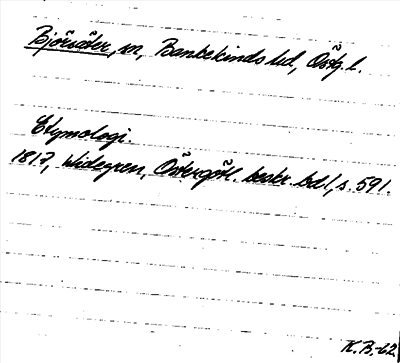 Björsäter, sn, Bankekinds hd, Östg. l.
Etymologi.
1817, Widegren, Östergötl. beskr. bd 1, s. 591.
K.B.-62